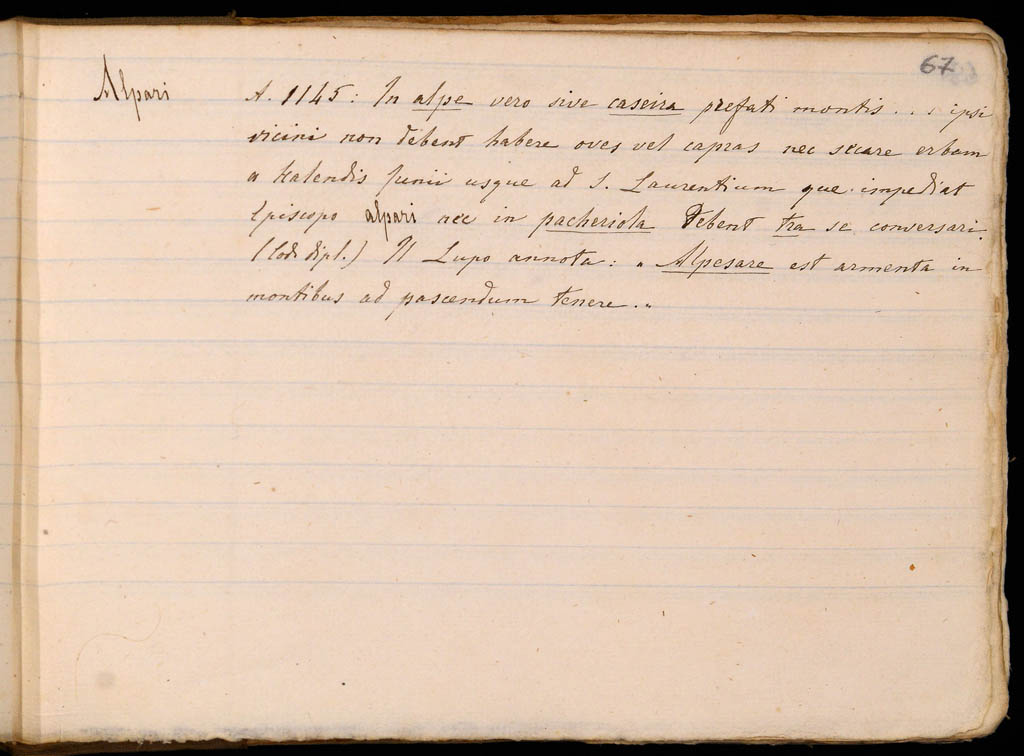 67
Alpari
A. 1145: In alpe vero sive caseira prefati montis ... ipsi
vicini non debent habere oves vel capras nec secare erbam
a Kalendis Junii usque ad S. Laurentium que impediat
Episcopo alpari nec in pacheriola debent tra se conversari.
(Cod. dipl.) Il Lupo annota: „ Alpesare est armenta in
montibus ad pascendum tenere. „